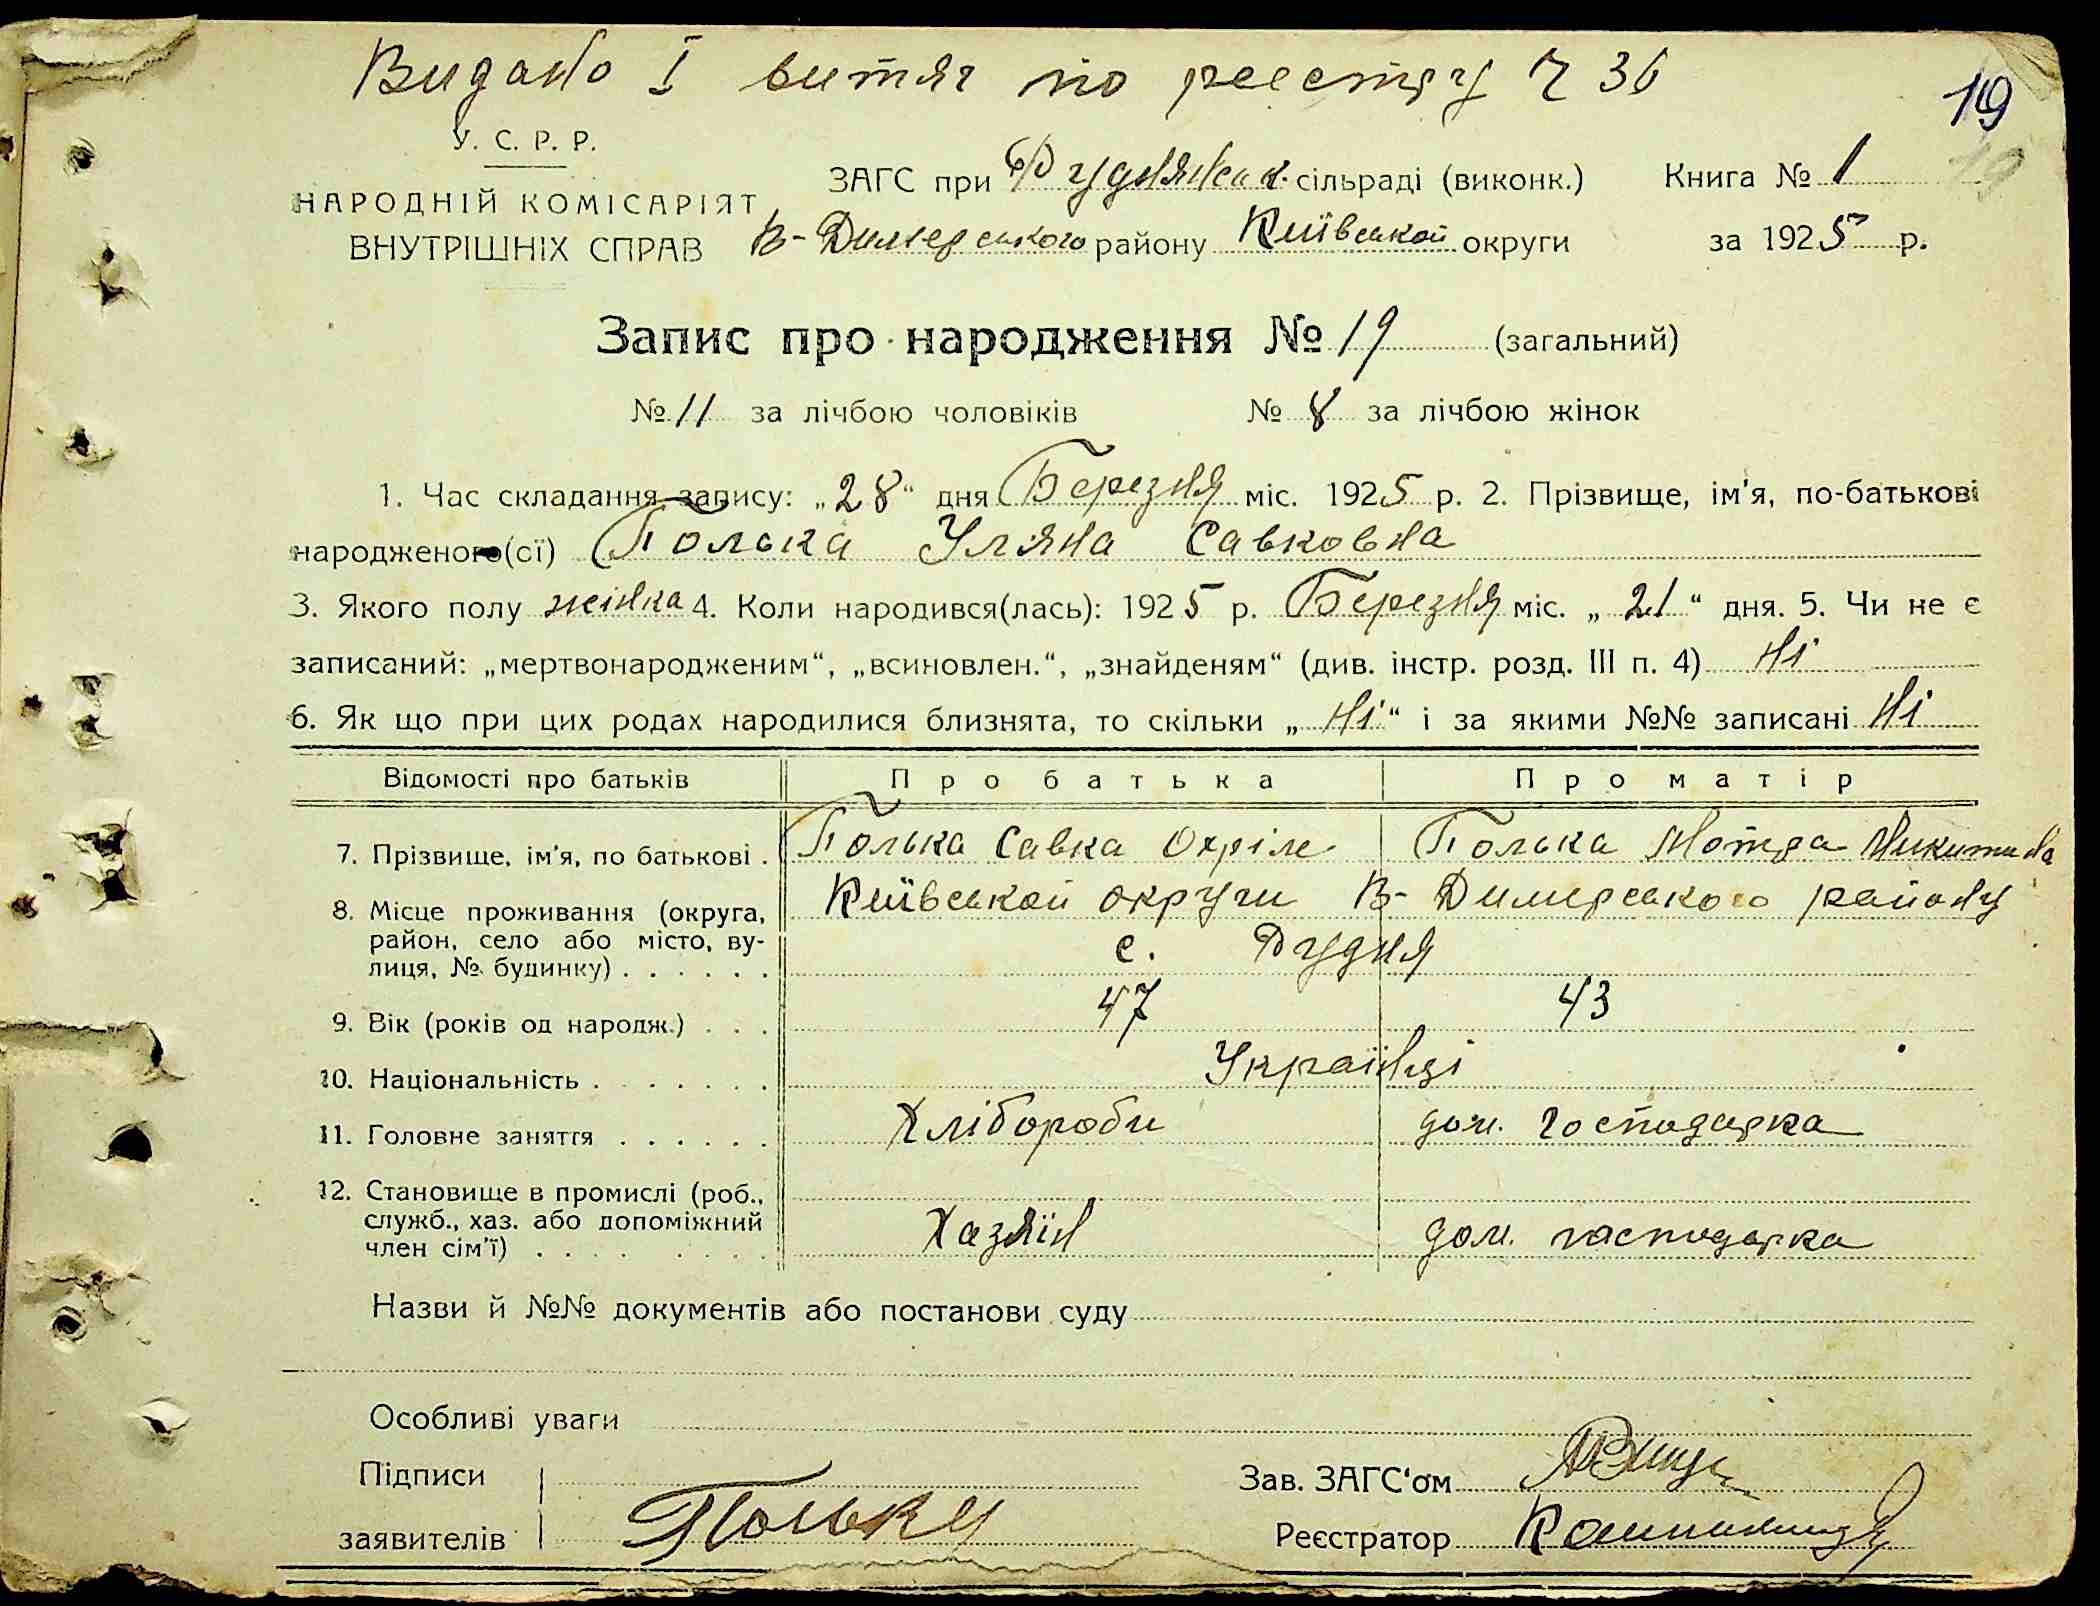 Видано І витяг по реєстру Ч 36
19
19
У. С. Р. Р.
НАРОДНІЙ КОМІСАРІЯТ
ВНУТРІШНІХ СПРАВ
ЗАГС при Руднянск. сільраді (виконк.) Книга № 1
В-Димерського району Київськой округи за 1925 р.
Запис про народження № 19 (загальний)
№ 11 за лічбою чоловіків № 8 за лічбою жінок
1. Час складання запису: „28“ дня Березня міс. 1925 р. 2. Прізвище, ім'я, по-батькові
народженого(сї) Полька Уляна Савковна
3. Якого полу жінка 4. Коли народився(лась): 1925 р. Березня міс. „21“ дня. 5. Чи не є
записаний: „мертвонародженим“, „всиновлен.“, „знайденям“ (див. інстр. розд. III п. 4) Ні
6. Як що при цих родах народилися близнята, то скільки „Ні“ і за якими №№ записані Ні
Відомості про батьків Про батька Про матір
7. Прізвище, ім'я, по батькові . Полька Савка Охрім. Полька Мотра Микитина
8. Місце проживання (округа, район, село або місто, вулиця, № будинку) . . . . . . Київськой округи В-Димерського району
с. Рудня
9. Вік (років од народж.) . . . 47 43
10. Національність . . . . . . . Українці
11. Головне заняття . . . . . . Хлібороби дом. господарка
12. Становище в промислі (роб., служб., хаз. або допоміжний член сім'ї) . . . . . . . . Хазяїн дом. гасподарка
Назви й №№ документів або постанови суду
Особливі уваги
Підписи
заявителів Польку
Зав. ЗАГС'ом
Реєстратор